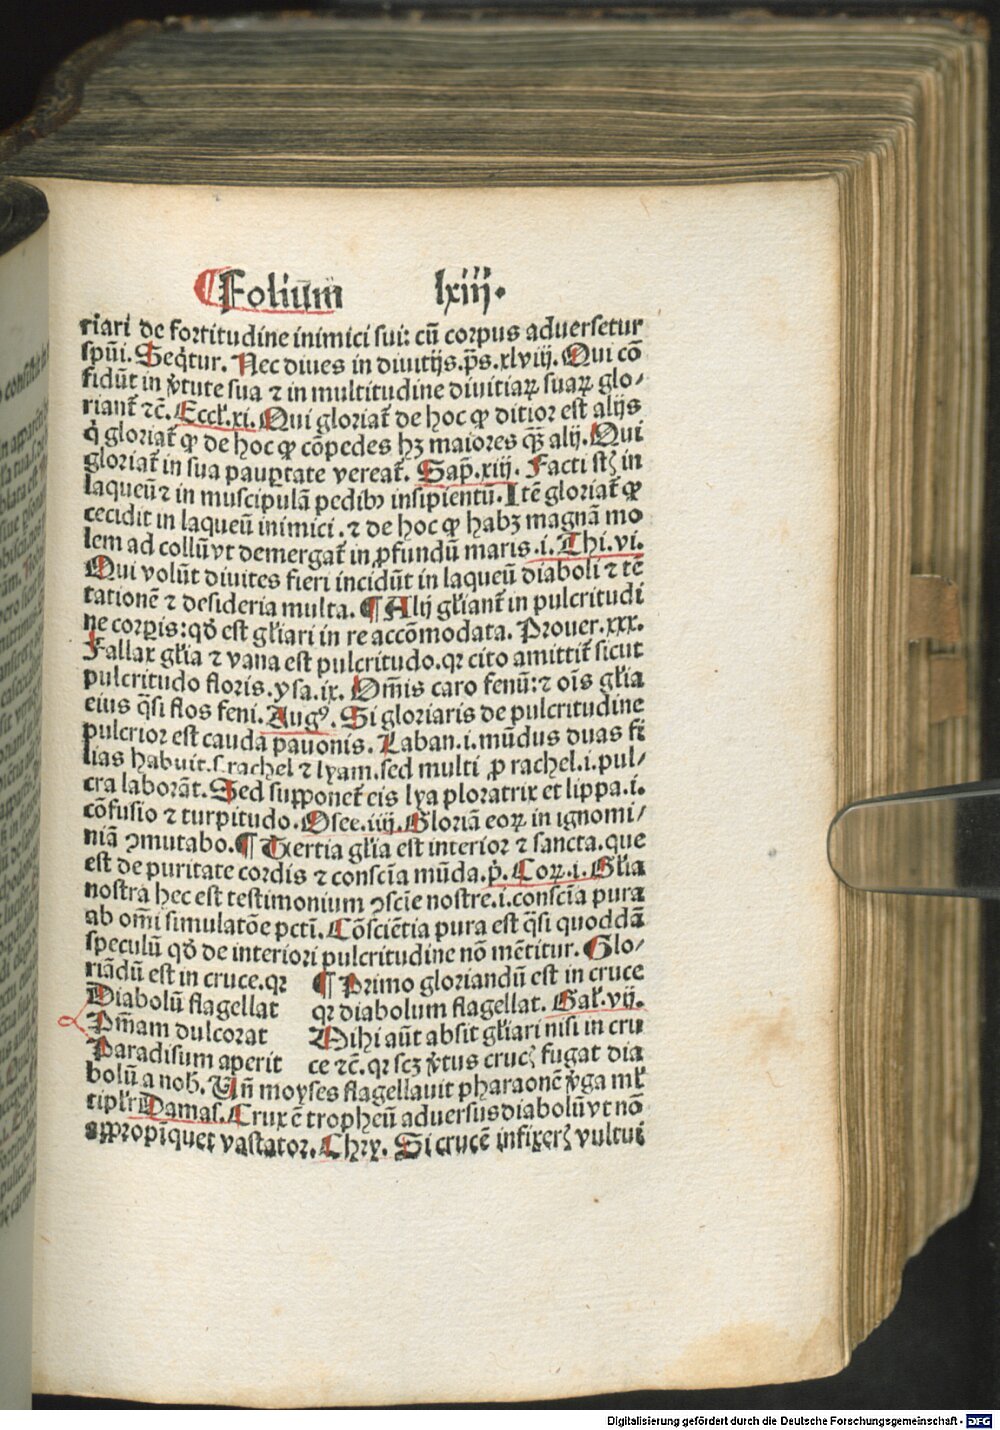 Folium lxiij.
riari de fortitudine inimici sui: cū corpus adversetur
spūi. Seq̄tur. Nec diues in diuitijs. p̄s. xlviij. Qui cō
fidūt in v̄tute sua ⁊ in multitudine diuitiaꝝ suaꝝ glo/
riant̄ ⁊c̄. Eccl̄. xi. Qui gloriat̄ de hoc ꝙ ditior est alijs
q̇ gloriat̄ ꝙ de hoc ꝙ cōpedes hꝫ maiores q̄ꝫ alij. Qui
gloriat̄ in sua paup̱tate vereat̄. Sap̄. xiij. Facti st̄ in
laqueū ⁊ in muscipulā pedibꝰ insipientū. Itē gloriat̄ ꝙ
cecidit in laqueū inimici. ⁊ de hoc ꝙ habꝫ magnā mo
lem ad collū vt demergat̄ in ꝓfundū maris. i. Thi. vi.
Qui volūt diuites fieri incidūt in laqueū diaboli ⁊ tē
tationē ⁊ desideria multa. ¶ Alij gl̄iant̄ in pulcritudi
ne corꝑis: qd̄ est gl̄iari in re accōmodata. Prouer. xxx.
Fallax gl̄ia ⁊ vana est pulcritudo. qꝛ cito amittit̄ sicut
pulcritudo floris. ysa. ix. Om̄is caro fenū: ⁊ ois gl̄ia
eius q̄si flos feni. Augꝰ. Si gloriaris de pulcritudine
pulcrior est cauda pauonis. Laban. i. mūdus duas fi
lias habuit. s. rachel ⁊ lyam. sed multi ꝓ rachel. i. pul/
cra laborāt. Sed supponet̄ eis lya ploratrix et lippa. i.
cōfusio ⁊ turpitudo. Osee. iiij. Gloriā eoꝝ in ignomi/
niā ꝯmutabo. ¶ Tertia gl̄ia est interior ⁊ sancta. que
est de puritate cordis ⁊ consciā mūda. p̄. Coꝝ. i. Gl̄ia
nostra hec est testimonium ꝯscie nostre. i. consciā pura
ab om̄i simulatōe pctī. Cōsciētia pura est q̄si quoddā
speculū qd̄ de interiori pulcritudine nō mētitur. Glo/
riādū est in cruce. qꝛ
Diabolū flagellat
Pm̄am dulcorat
Paradisum aperit
¶ Primo gloriandū est in cruce
qꝛ diabolum flagellat. Gal̄. vij.
Mihi aūt absit gl̄iari nisi in cru
ce ⁊c̄. qꝛ scꝫ v̄tus cruc̄ fugat dia
bolū a nob̄. Un̄ moyses flagellauit pharaonē v̄ga ml̄
tipl̄r Damas. Crux ē tropheū aduersus diabolū vt nō
appropīquet vastator. Chry. Si crucē infixer̄ vultui
Digitalisierung gefördert durch die Deutsche Forschungsgemeinschaft - DFG